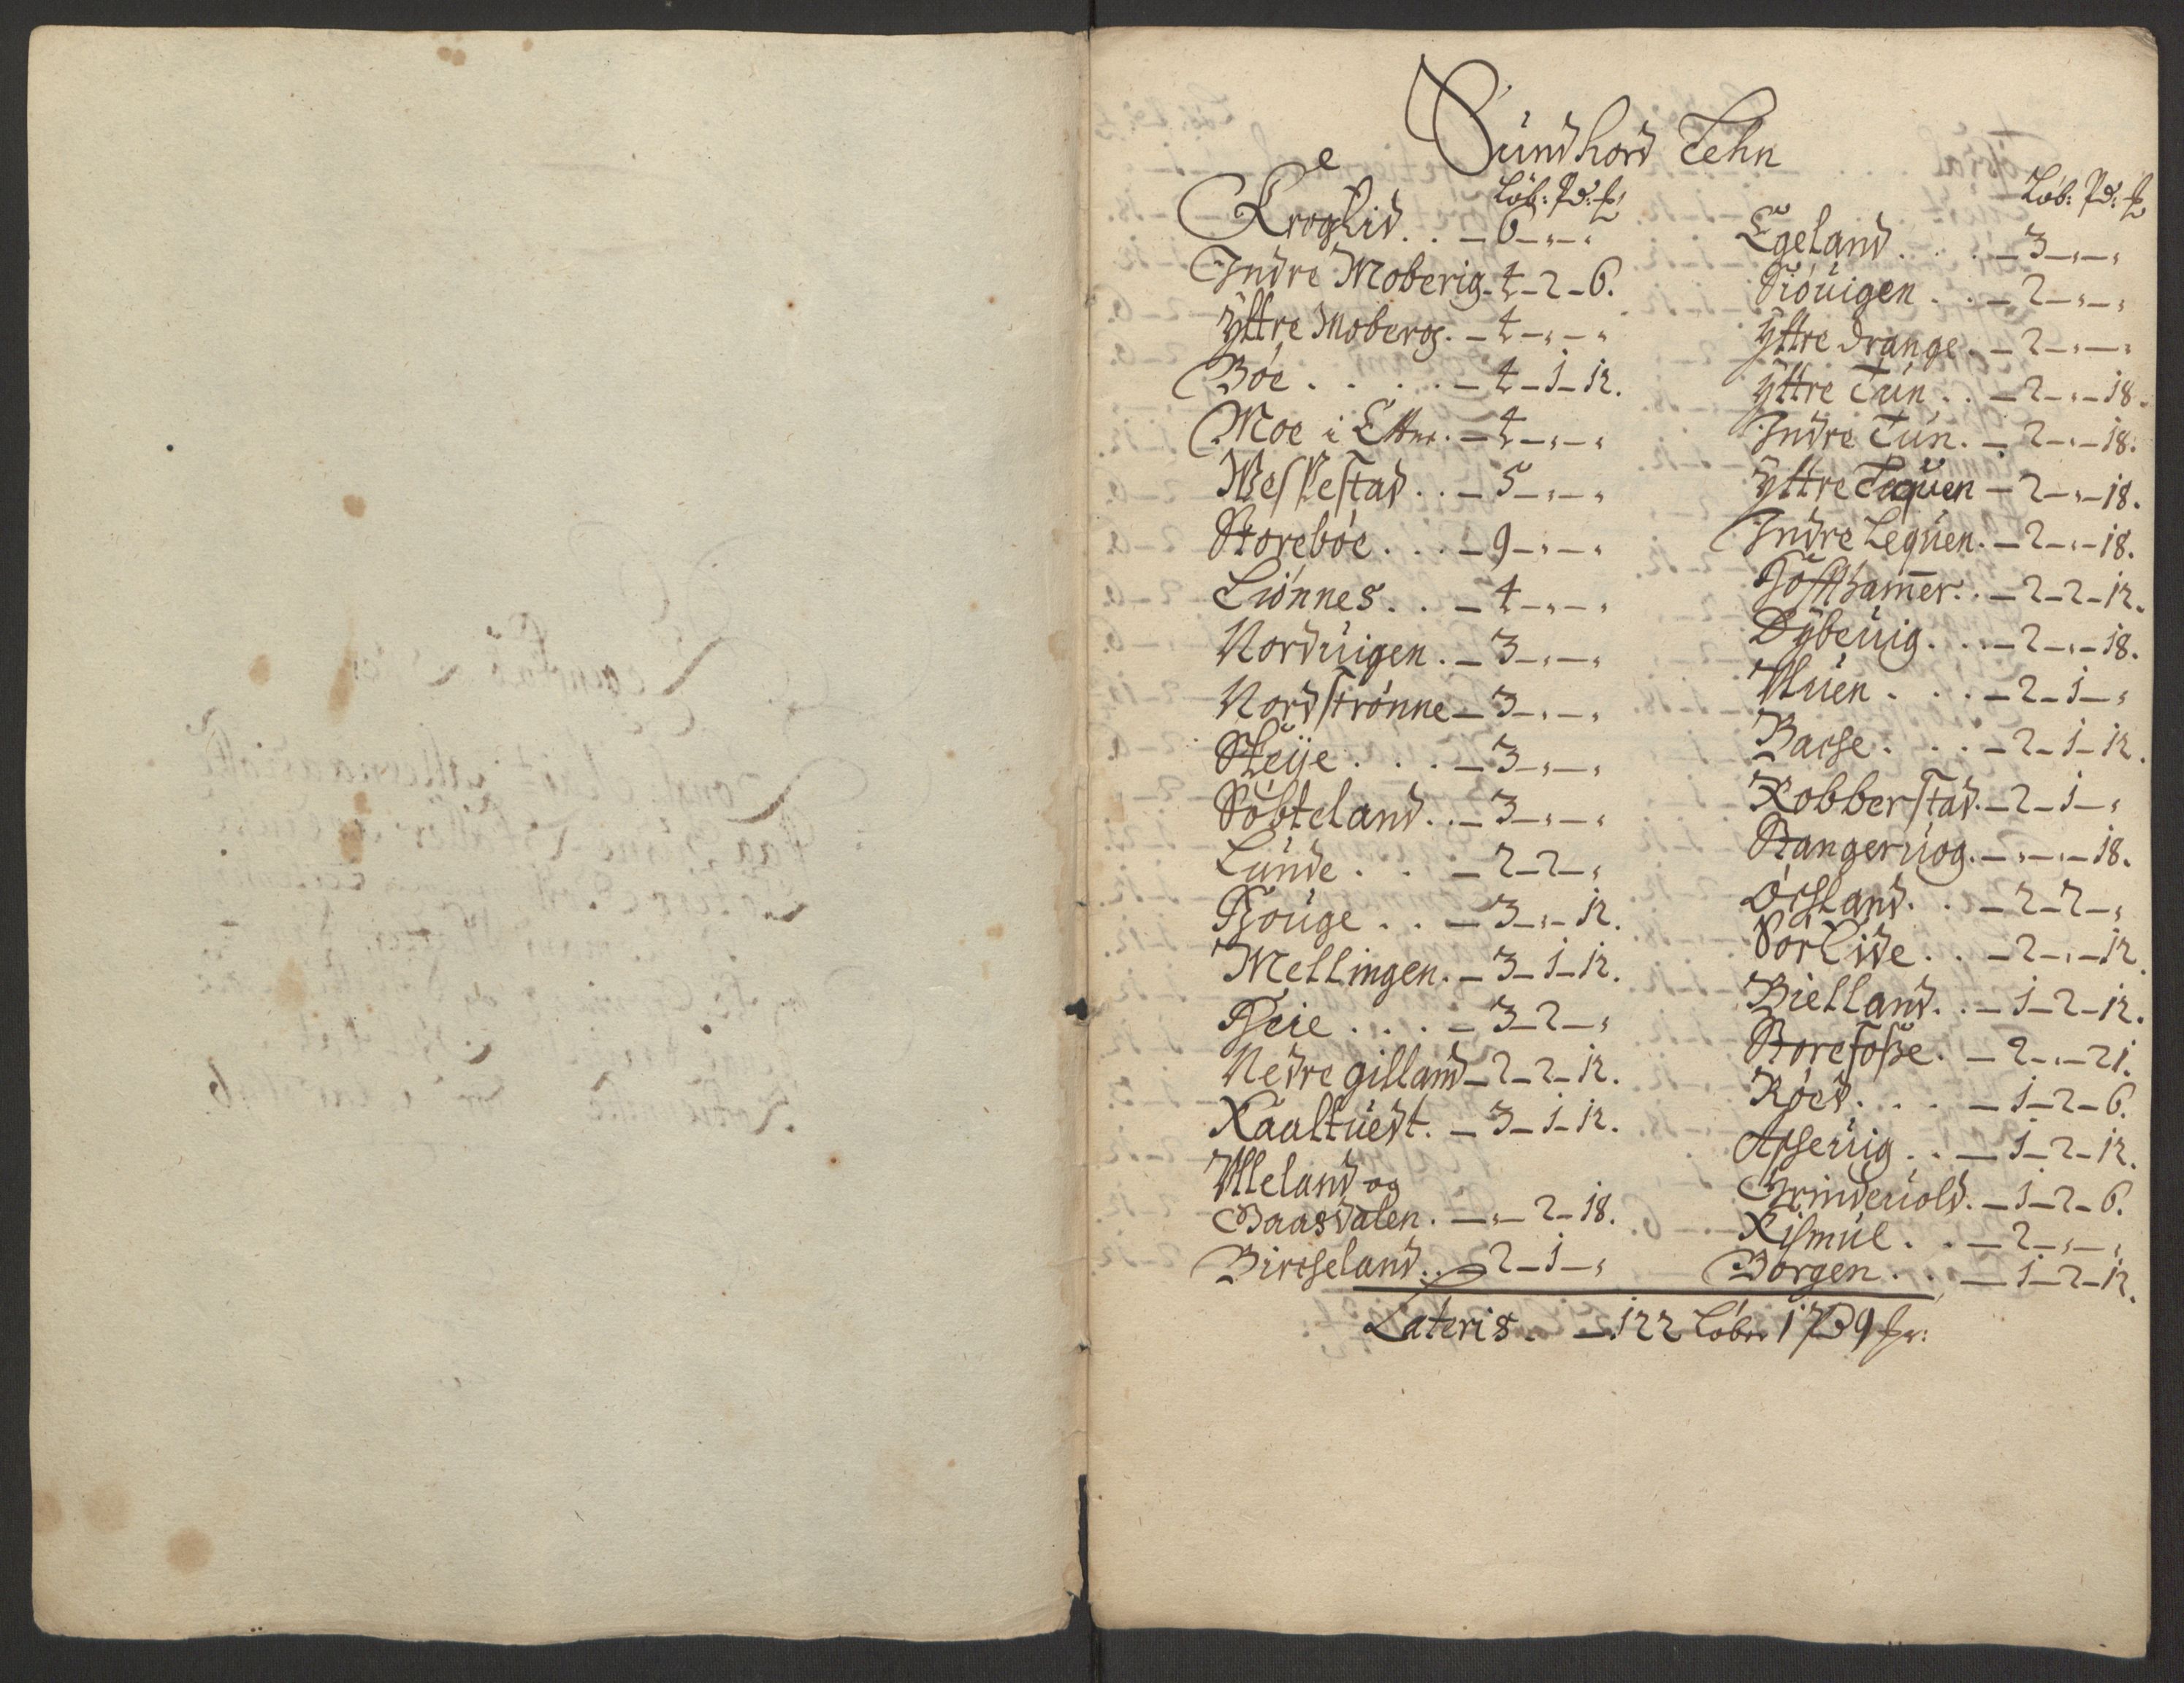 Sundhord Lehn
Löb: Pd: ℔
Kroghid . . – 6 – „ – „
Indre Moberig – 4 – 2 – 6.
Ÿttre Moberg. – 4 – „ – „
Böe . . . . – 4 – 1 – 12.
Moe i Ettne. – 4 – „ – „
Weskestad . . – 5 – „ – „
Storeböe . . . – 9 – „ – „
Liönnes . . – 4 – „ – „
Norduigen . – 3 – „ – „
Nordströnne – 3 – „ – „
Skeije . . . – 3 – „ – „
Söbteland . . – 3 – „ – „
Lunde . . – 2 – 2 – „
Houge . . – 3 – „ – 12.
Mellingen . – 3 – 1 – 12.
Heie . . . – 3 – 2 – „
Nedre gilland – 2 – 2 – 12.
Kaaltuedt. – 3 – 1 – 12.
Wleland og
Baasdalen . – „ – 2 – 18.
Birckeland . . – 2 – 1 – „
Löb: Pd: ℔
Egeland . . . – 3 – „ – „
Siöuigen . . – 2 – „ – „
Ÿttre Drange . – 2 – „ – „
Ÿttre Tun . . – 2 – „ – 18.
Indre Tun . – 2 – „ – 18.
Ÿttre Lequen – 2 – „ – 18.
Indre Lequen . – 2 – „ – 18.
Toftham̄er . . – 2 – 2 – 12.
Dÿbeuig . . . – 2 – „ – 18.
Uluen . . . – 2 – 1 – „
Backe . . . – 2 – 1 – 12.
Robberstad . – 2 – 1 – „
Stangeruog . – „ – „ – 18.
Öchland . . – 2 – 2 – „
Sörlide . . – 2 – „ – 12.
Bielland . . – 1 – 2 – 12.
Storefosse . – 2 – „ – 21.
Röed . . . – 1 – 2 – 6.
Ackeruig . . – 1 – 2 – 12.
Grindeuold . – 1 – 2 – 6.
Kismul . . – 2 – „ – „
Borgen . . – 1 – 2 – 12.
Lateris . – 122 Löber 1 Pd 9 ℔r: